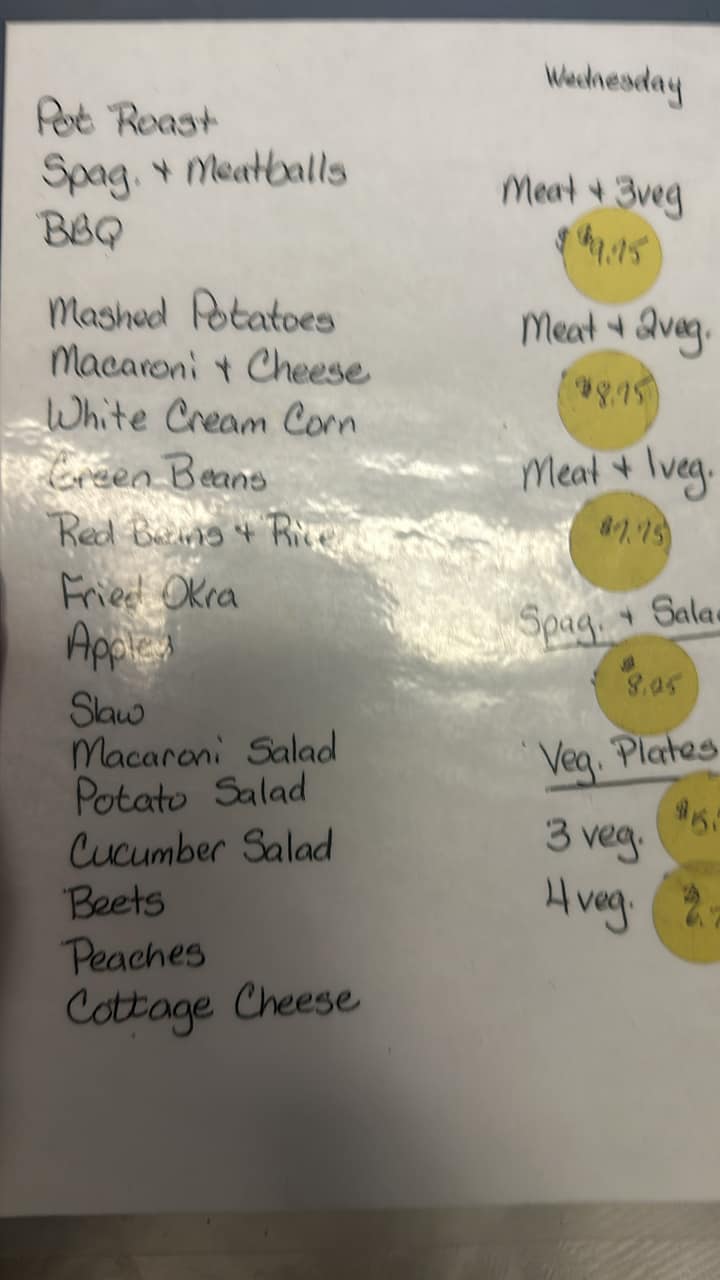 Wednesday
Pot Roast
Spag. + Meatballs
BBQ
Mashed Potatoes
Macaroni + Cheese
White Cream Corn
Green Beans
Red Beans + Rice
Fried Okra
Apples
Slaw
Macaroni Salad
Potato Salad
Cucumber Salad
Beets
Peaches
Cottage Cheese
Meat + 3veg
$9.75
Meat + 2veg.
$8.75
Meat + 1veg.
$7.75
Spag. + Sala
$8.25
Veg. Plates
3 veg.
4 veg.